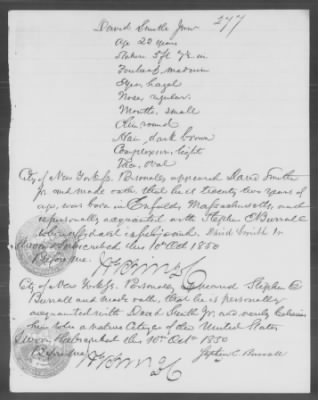 277
David Smith Junr
Age 22 years
Stature 5 ft 7½ in
Forehead, medium
Eyes, hazel
Nose, regular
Mouth, small
Chin, round
Hair, dark brown
Complexion, light
Face, oval
City of New York ss. Personally appeared David Smith
Jr. and made oath that he is twenty two years of
age, was born in Enfield, Massachusetts, and
is personally acquainted with Stephen C Burnall
David Smith Jr
Sworn & subscribed this 10th Oct 1850
Before me.
City of New York ss. Personally appeared Stephen C
Burnall and made oath that he is personally
acquainted with David Smith Jr. and verily believes
him to be a native Citizen of the United States
Sworn & subscribed this 10th Oct 1850
Before me
Stephen C. Burnall